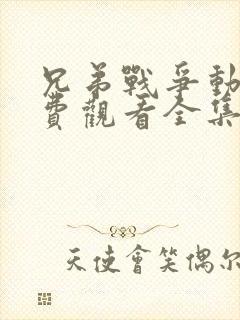 兄弟戰爭動
費觀看全集
天使會笑偶尔